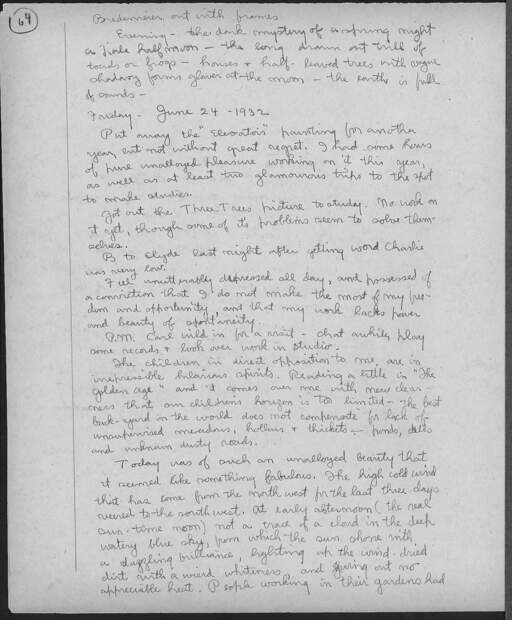 64
out with frames
Evening - the dark mystery of a spring night
a pale half moon - the long drawn out trill of
toads or frogs - houses & half-leaved trees with vague
shadowy forms at the moon - the earth is full
of sounds -
Friday - June 24 - 1932
Put away the "Elevators" painting for another
year, but not without great regret. I had some hours
of pure unalloyed pleasure working on it this year,
as well as at least two glamourous trips to the spot
to make studies.
Got out the Three Trees picture to study. No work on
it yet, though some of it's problems seem to solve them-
selves.
B to Clyde last night after getting word Charlie
was very low.
Feel unutterably depressed all day, and possessed of
a conviction that I do not make the most of my free-
dom and opportunity and that my work lacks power
and beauty of spontaneity.
P.M. Carl in for a visit - chat awhile, play
some records & look over work in studio.
The children, in direct opposition to me, are in
irrepressible hilarious spirits. Reading a little in "The
Golden age" and it comes over me with new clear-
ness that our children's horizon is too limited - the best
back-yard in the world does not compensate for lack of
unsupervised meadows, hollows & thickets - ponds, dells
and unknown dusty roads.
Today was of such an unalloyed beauty that
it seemed like something fabulous. The high cold wind
that has come from the northwest for the last three days
veered to the southwest. At early afternoon (the real
sun-time noon) not a trace of a cloud in the deep
watery blue sky, from which the sun shone with
a dazzling brilliance, lighting up the wind-dried
dirt with a weird whiteness, and giving out no
appreciable heat. People working in their gardens had